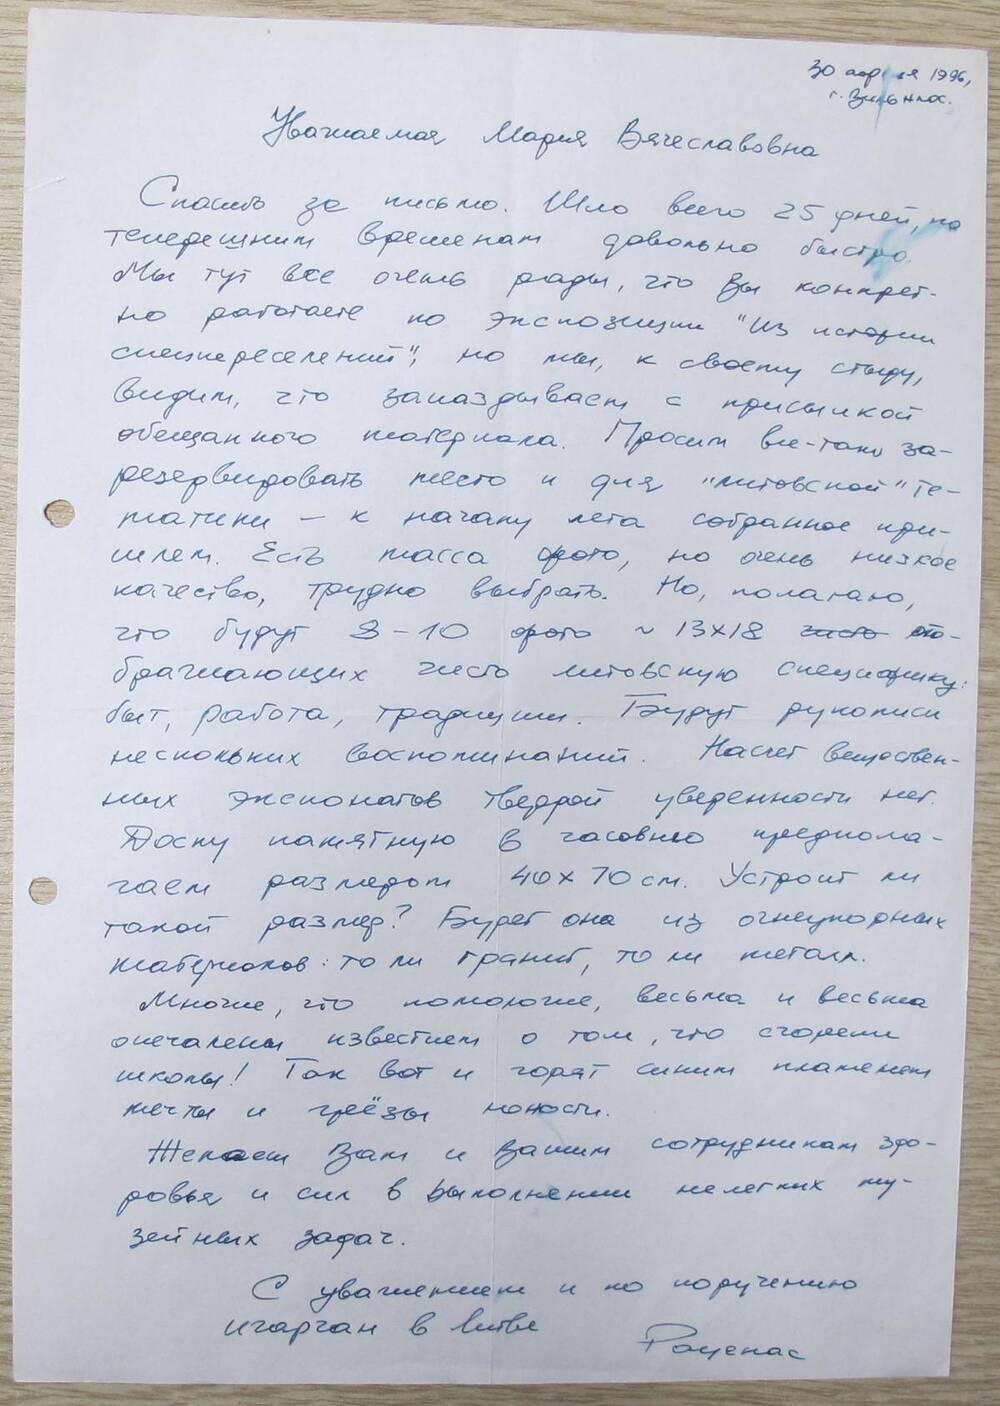 30 апреля 1996,
г. Вильнюс.
Уважаемая Мария Вячеславовна
Спасибо за письмо. Шло всего 25 дней, по
теперешним временам довольно быстро.
Мы тут все очень рады, что Вы конкрет-
но работаете по экспозиции "Из истории
спецпереселений", но мы, к своему стыду,
видим, что запаздываем с присылкой
обещанного материала. Просим все-таки за-
резервировать место и для "литовской" те-
матики – к началу лета собранное при-
шлем. Есть масса фото, но очень низкое
качество, трудно выбрать. Но, полагаю,
что будут 8-10 фото ~ 13х18 чисто ото-
бражающих чисто литовскую специфику:
быт, работа, традиции. Будут рукописи
нескольких воспоминаний. Насчет веществен-
ных экспонатов твердой уверенности нет.
Доску памятную в часовню предпола-
гаем размером 40х70 см. Устроит ли
такой размер? Будет она из огнеупорных
материалов: то ли гранит, то ли металл.
Многие, что помоложе, весьма и весьма
опечалены известием о том, что сгорели
школы! Так вот и горят синим пламенем
мечты и грёзы юности.
Желаем Вам и Вашим сотрудникам здо-
ровья и сил в выполнении нелегких му-
зейных задач.
С уважением и по поручению
игарчан в Литве